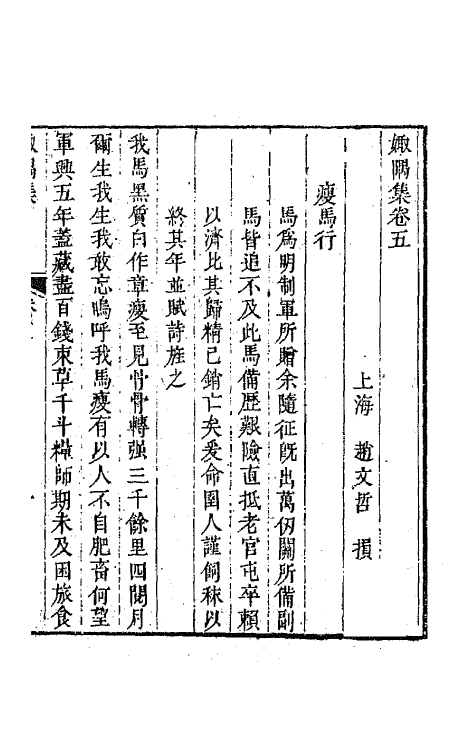 娵隅集卷五
上海 趙文哲 損
瘦馬行
馬爲明制軍所贈余隨征旣出萬仞關所備副
馬皆追不及此馬備歷艱險直抵老官屯卒賴
以濟比其歸精已銷亡矣爰命圉人謹飼秣以
終其年並賦詩旌之
我馬黑質白作章瘦至見骨骨轉强三千餘里四閱月
爾生我生我敢忘嗚呼我馬瘦有以人不自肥畜何望
軍興五年蓋藏盡百錢束草千斗糧師期未及困旅食